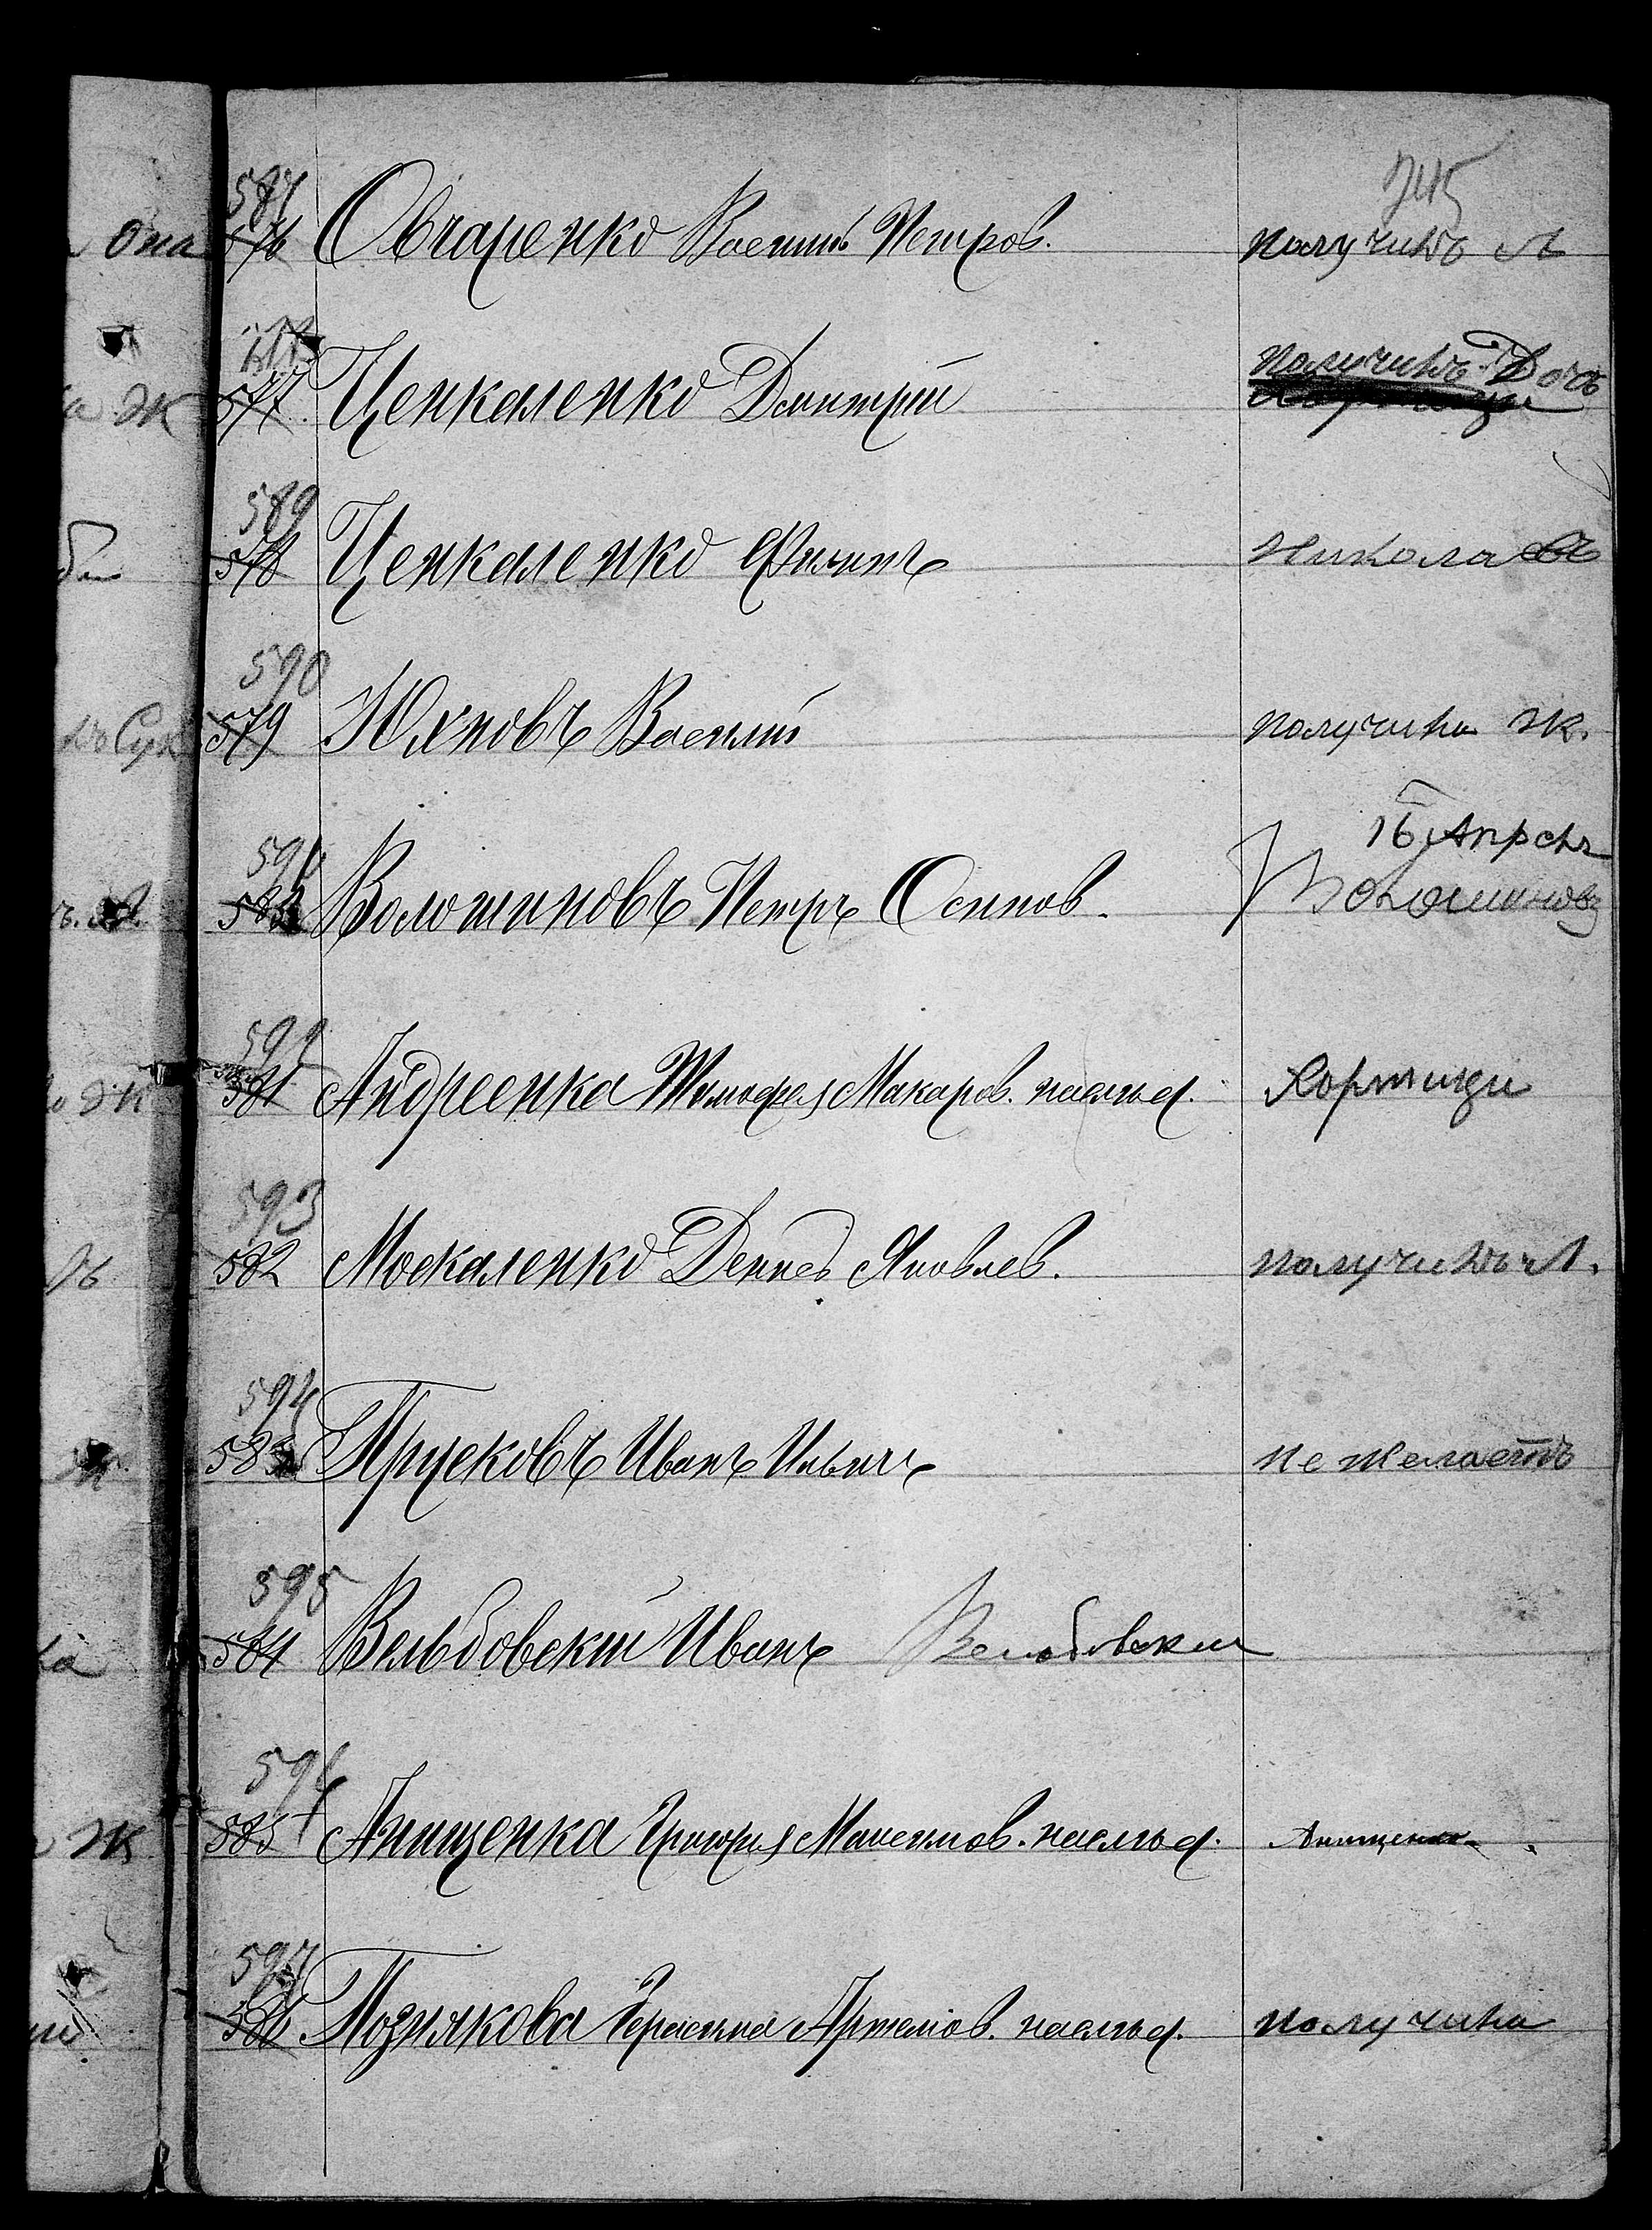 587
576 Овчаренко Василій Петров. получилъ Л
577 Ценкаленко Дмитрій получилъ Дочь
589
578 Ценкаленко Филиппъ Никола
590
579 Юхновъ Василій получила Ж.
16 Апрель
591
Волошиновъ Петръ Осипов. Волошиновъ
592
581 Андреенка Тимофея Макаров. наслѣд. Хортици
593
582 Москаленко Денисъ Яковлев. получилъ Л.
594
583 Прусковъ Иванъ Ильичъ не желаетъ
595
584 Вельбовскій Иванъ Велбовски
596
585 Анищенка Григорія Максимов. наслѣд. Анищенко
597
586 Позднякова Герасима Артемов. наслѣд. получила